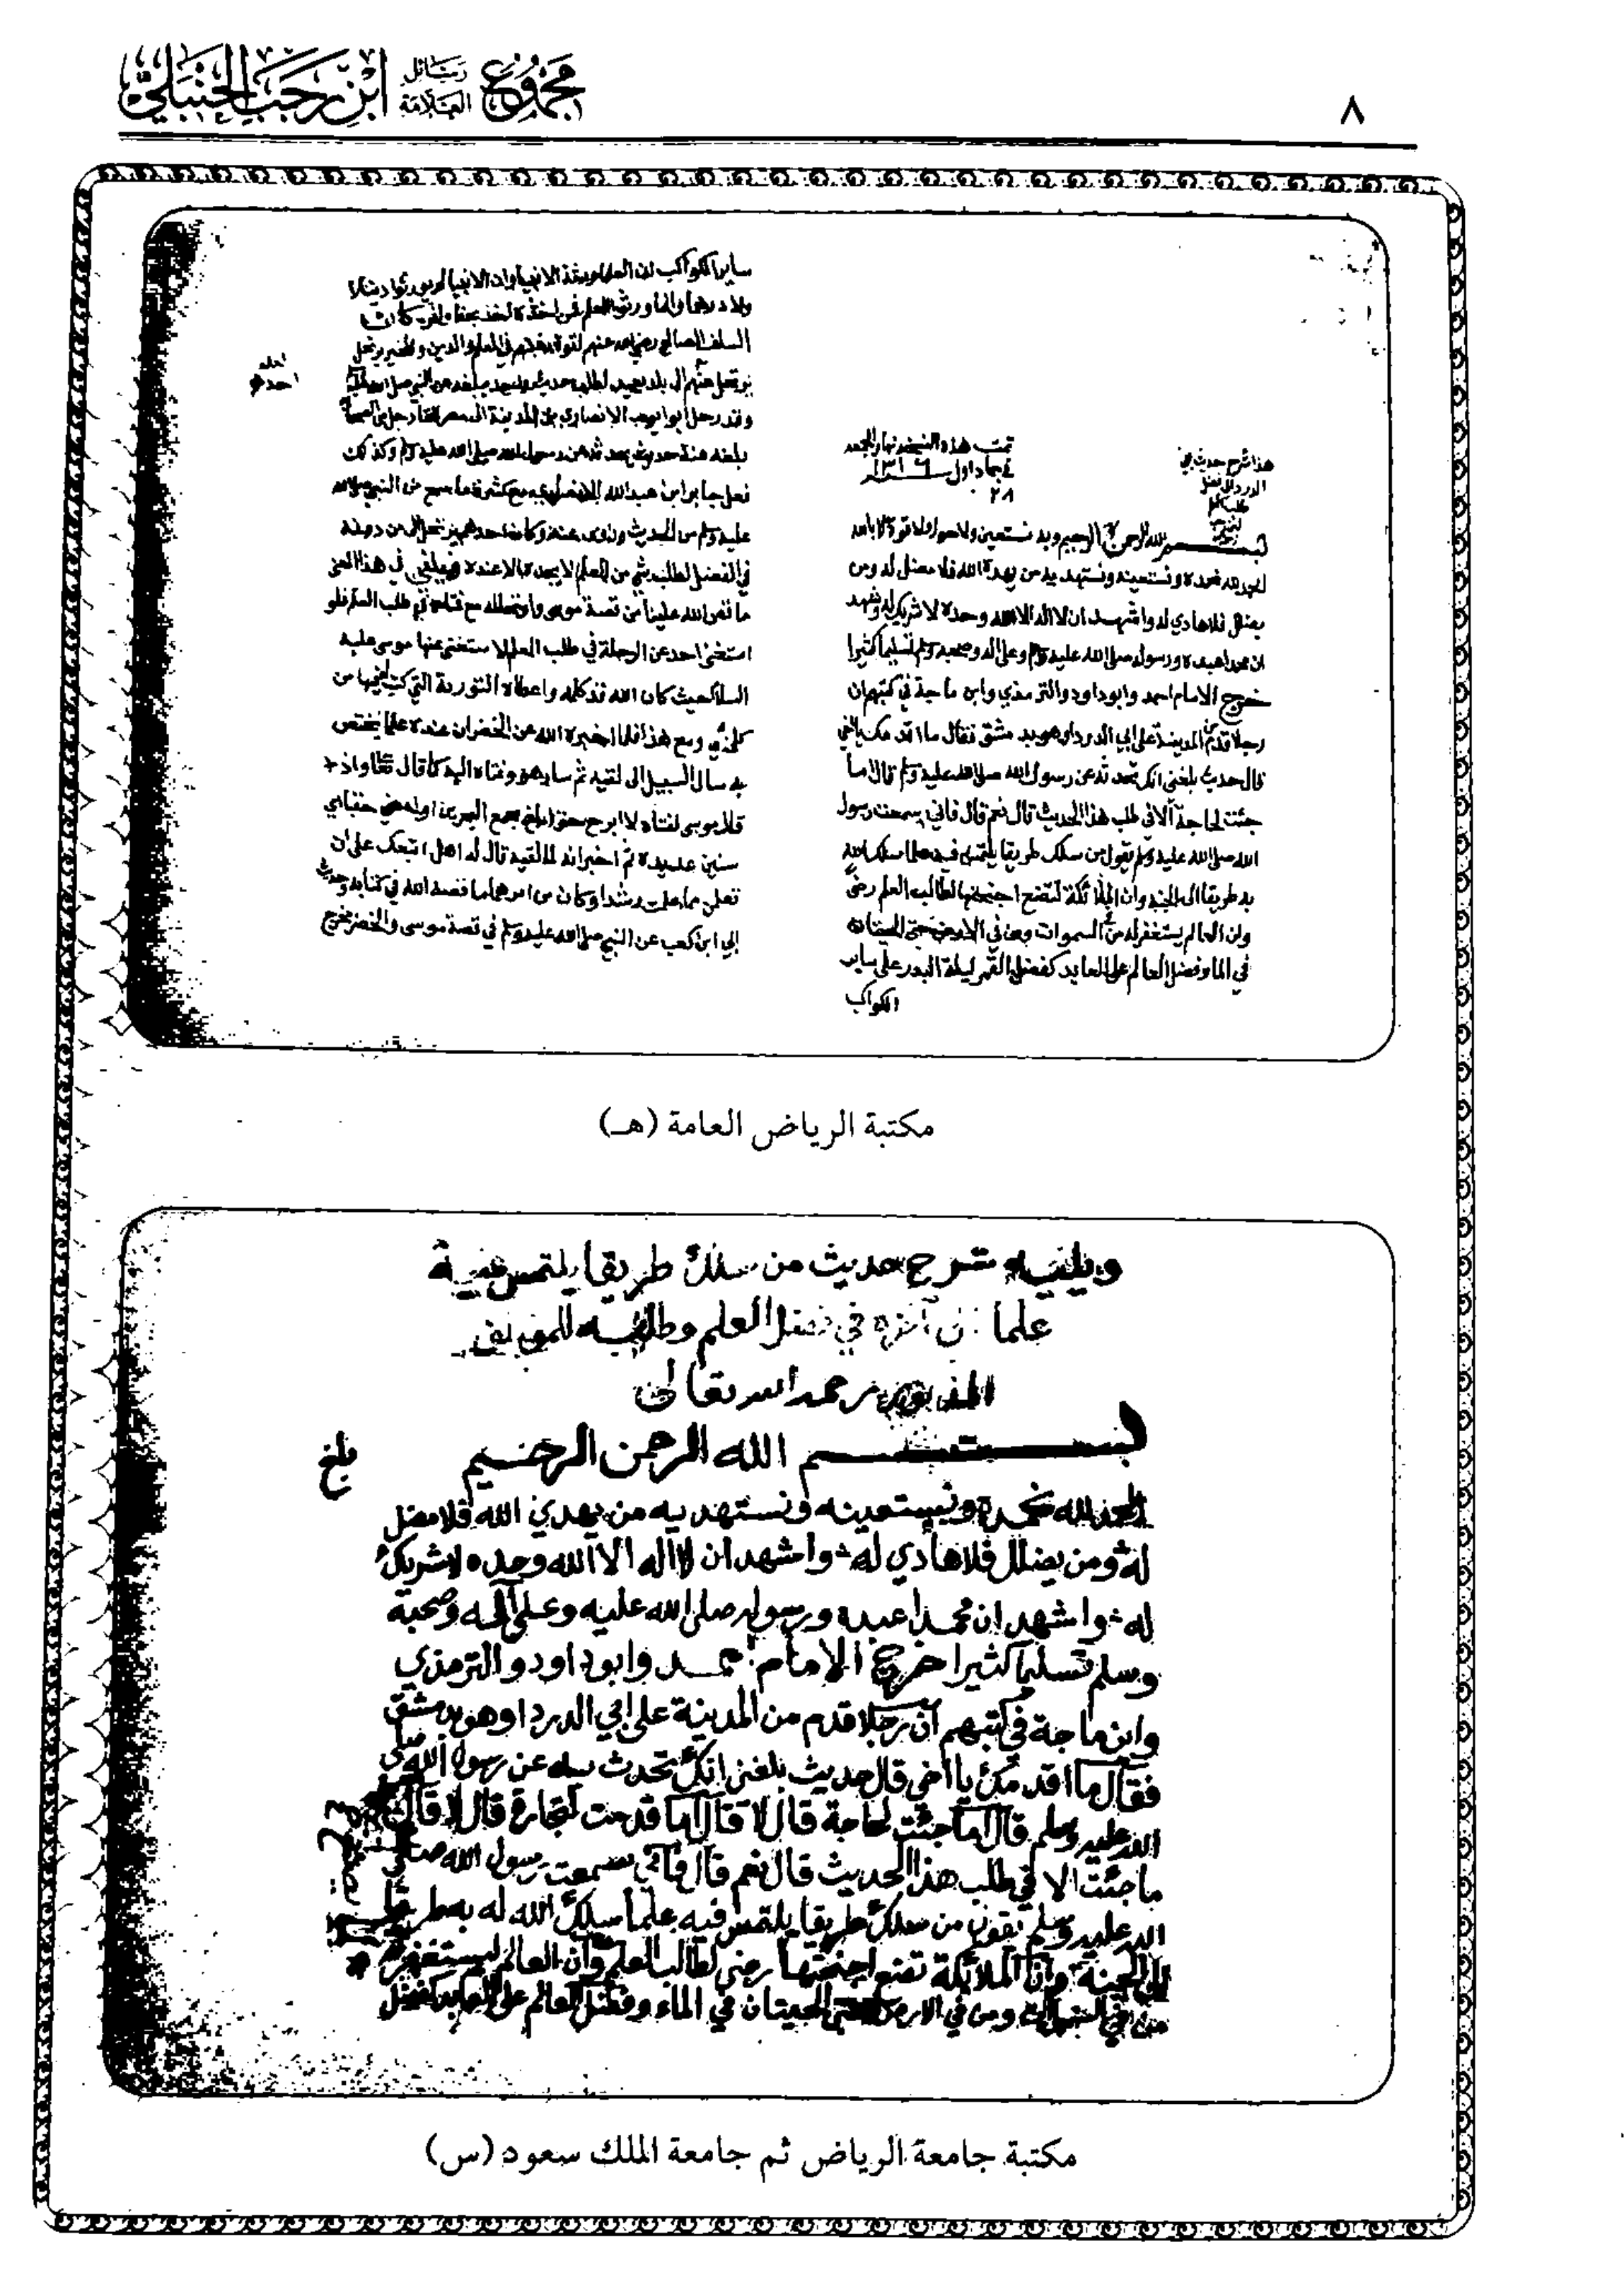 ٨
مجموع رسائل العلامة ابن رجب الحنبلي
هذا شرح حديث أبي
الدرداء
تمت هذه النسخة نهار الجمعة
جماد اول ١٣١٦
٢٨
بسم الله الرحمن الرحيم وبه نستعين ولا حول ولا قوة الا بالله
الحمد لله نحمده ونستعينه ونستهديه من يهده الله فلا مضل له ومن
يضلل فلا هادي له واشهد ان لا اله الا الله وحده لا شريك له واشهد
ان محمدا عبده ورسوله صلى الله عليه وسلم وعلى اله وصحبه وسلم تسليما كثيرا
خرج الامام احمد وابو داود والترمذي وابن ماجة في كتبهم ان
رجلا قدم من المدينة على ابي الدردا وهو بدمشق فقال ما اقدمك يا اخي
قال حديث بلغني انك تحدثه عن رسول الله صلى الله عليه وسلم قال اما
جئت لحاجة الا في طلب هذا الحديث قال نعم قال فاني سمعت رسول
الله صلى الله عليه وسلم يقول من سلك طريقا يلتمس فيه علما سلك الله
به طريقا الى الجنة وان الملائكة لتضع اجنحتها لطالب العلم رضى
وان العالم يستغفر له من السموات ومن في الارض حتى الحيتان
في الما وفضل العالم على العابد كفضل القمر ليلة البدر على ساير
الكواكب
ساير الكواكب ان العلما ورثة الانبيا وان الانبيا لم يورثوا دينارا
ولا درهما وانما ورثوا العلم فمن اخذه اخذ بحظ وافر كان
السلف الصالح رضي الله عنهم لقوة رغبتهم في العلم والدين والخير يرتحل
احدهم الى بلد بعيد لطلب حديث واحد يبلغه عن النبي صلى الله عليه
وقد رحل ابو ايوب الانصاري من المدينة الى مصر للقا رجل من الصحابة
بلغه عنه حديث يحدثه عن رسول الله صلى الله عليه وسلم وكذلك
فعل جابر ابن عبد الله الانصاري مع كثرة ما سمع من النبي صلى الله
عليه وسلم من الحديث وروى عنه وكان احدهم يرتحل الى من دونه
في الفضل لطلب شي من العلم لا يجده الا عنده ويكفي في هذا المعنى
ما قص الله علينا من قصة موسى وارتحاله مع فتاه في طلب العلم فلو
استغنى احد عن الرحلة في طلب العلم لاستغنى عنها موسى عليه
السلام حيث كان الله قد كلمه واعطاه التورية التي كتب فيها من
كل شي ومع هذا فلما اخبره الله عن الخضر ان عنده علما يختص
به سال السبيل الى لقيه ثم سار هو وفتاه اليه كما قال تعالى واذ
قال موسى لفتاه لا ابرح حتى ابلغ مجمع البحرين او امضي حقبا يعني
سنين عديدة ثم اخبر انه لما لقيه قال له هل اتبعك على ان
تعلمن مما علمت رشدا وكان من امرهما ما قصه الله في كتابه وحديث
ابي ابن كعب عن النبي صلى الله عليه وسلم في قصة موسى والخضر مخرج
مكتبة الرياض العامة (هـ)
ويليه شرح حديث من سلك طريقا يلتمس فيه
علما الى آخره في فضل العلم وطلبه للمؤلف
المذكور رحمه الله تعالى
بسم الله الرحمن الرحيم
بلغ
الحمد لله نحمده ونستعينه ونستهديه من يهدي الله فلا مضل
له ومن يضلل فلا هادي له واشهد ان لا اله الا الله وحده لا شريك
له واشهد ان محمدا عبده ورسوله صلى الله عليه وعلى آله وصحبه
وسلم تسليما كثيرا خرج الامام احمد وابو داود والترمذي
وابن ماجة في كتبهم ان رجلا قدم من المدينة على ابي الدرداء وهو بدمشق
فقال ما اقدمك يا اخي قال حديث بلغني انك تحدث به عن رسول الله صلى
الله عليه وسلم قال اما جئت لحاجة قال لا قال اما قدمت لتجارة قال لا قال
ما جئت الا في طلب هذا الحديث قال نعم قال فاني سمعت رسول الله صلى
الله عليه وسلم يقول من سلك طريقا يلتمس فيه علما سلك الله له به طريقا
الى الجنة وان الملائكة تضع اجنحتها رضى لطالب العلم وان العالم ليستغفر له
من في السموات ومن في الارض حتى الحيتان في الماء وفضل العالم على العابد كفضل
مكتبة جامعة الرياض ثم جامعة الملك سعود (س)